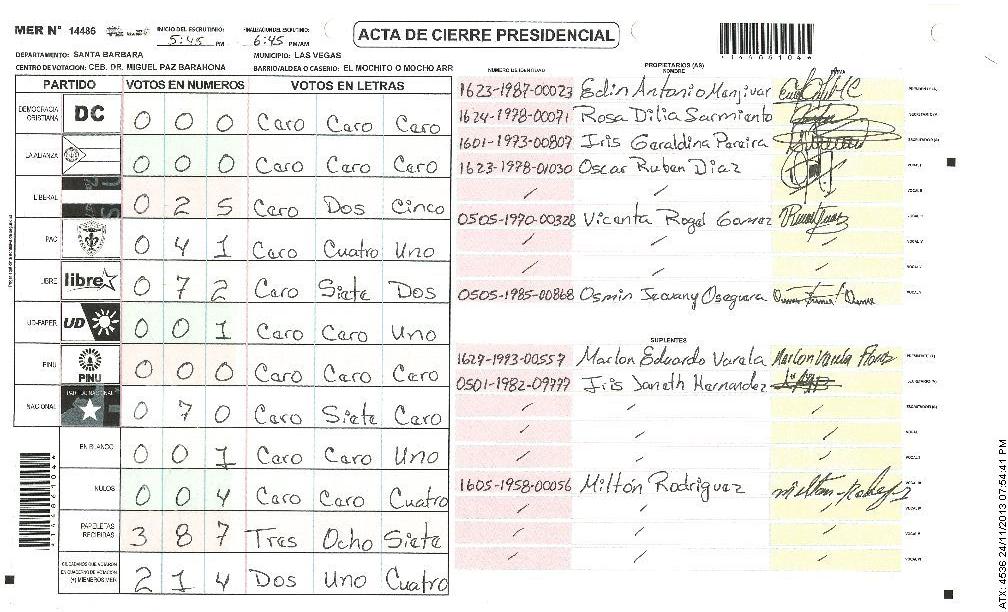 MER N° 14486
INICIO DEL ESCRUTINIO: 5:45 PM
FINALIZACION DEL ESCRUTINIO: 6:45 PM/AM
ACTA DE CIERRE PRESIDENCIAL
DEPARTAMENTO: SANTA BARBARA
MUNICIPIO: LAS VEGAS
CENTRO DE VOTACION: CEB. DR. MIGUEL PAZ BARAHONA
BARRIO/ALDEA O CASERIO: EL MOCHITO O MOCHO ARR
PARTIDO VOTOS EN NUMEROS VOTOS EN LETRAS
DEMOCRACIA CRISTIANA DC 0 0 0 Cero Cero Cero
LA ALIANZA 0 0 0 Cero Cero Cero
LIBERAL 0 2 5 Cero Dos Cinco
PAC 0 4 1 Cero Cuatro Uno
LIBRE libre 0 7 2 Cero Siete Dos
UD-FAPER UD 0 0 1 Cero Cero Uno
PINU PINU 0 0 0 Cero Cero Cero
NACIONAL PARTIDO NACIONAL 0 7 0 Cero Siete Cero
EN BLANCO 0 0 1 Cero Cero Uno
NULOS 0 0 4 Cero Cero Cuatro
PAPELETAS RECIBIDAS 3 8 7 Tres Ocho Siete
CIUDADANOS QUE VOTARON EN CUADERNO DE VOTACION (+) MIEMBROS MER 2 1 4 Dos Uno Cuatro
PROPIETARIOS (AS)
NUMERO DE IDENTIDAD NOMBRE FIRMA
1623-1987-00023 Edin Antonio Menjivar
1624-1978-00071 Rosa Dilia Sarmiento
1601-1973-00807 Iris Geraldina Pereira
1623-1978-01030 Oscar Ruben Diaz
0505-1970-00328 Vicenta Rogel Gomez
0505-1985-00868 Osmin Jeovany Oseguera
SUPLENTES
1627-1993-00557 Marlon Eduardo Varela Marlon Varela
0501-1982-09777 Iris Janeth Hernandez
1605-1958-00056 Miltón Rodriguez milton
ATX: 4536 24/11/2013 07:54:41 PM